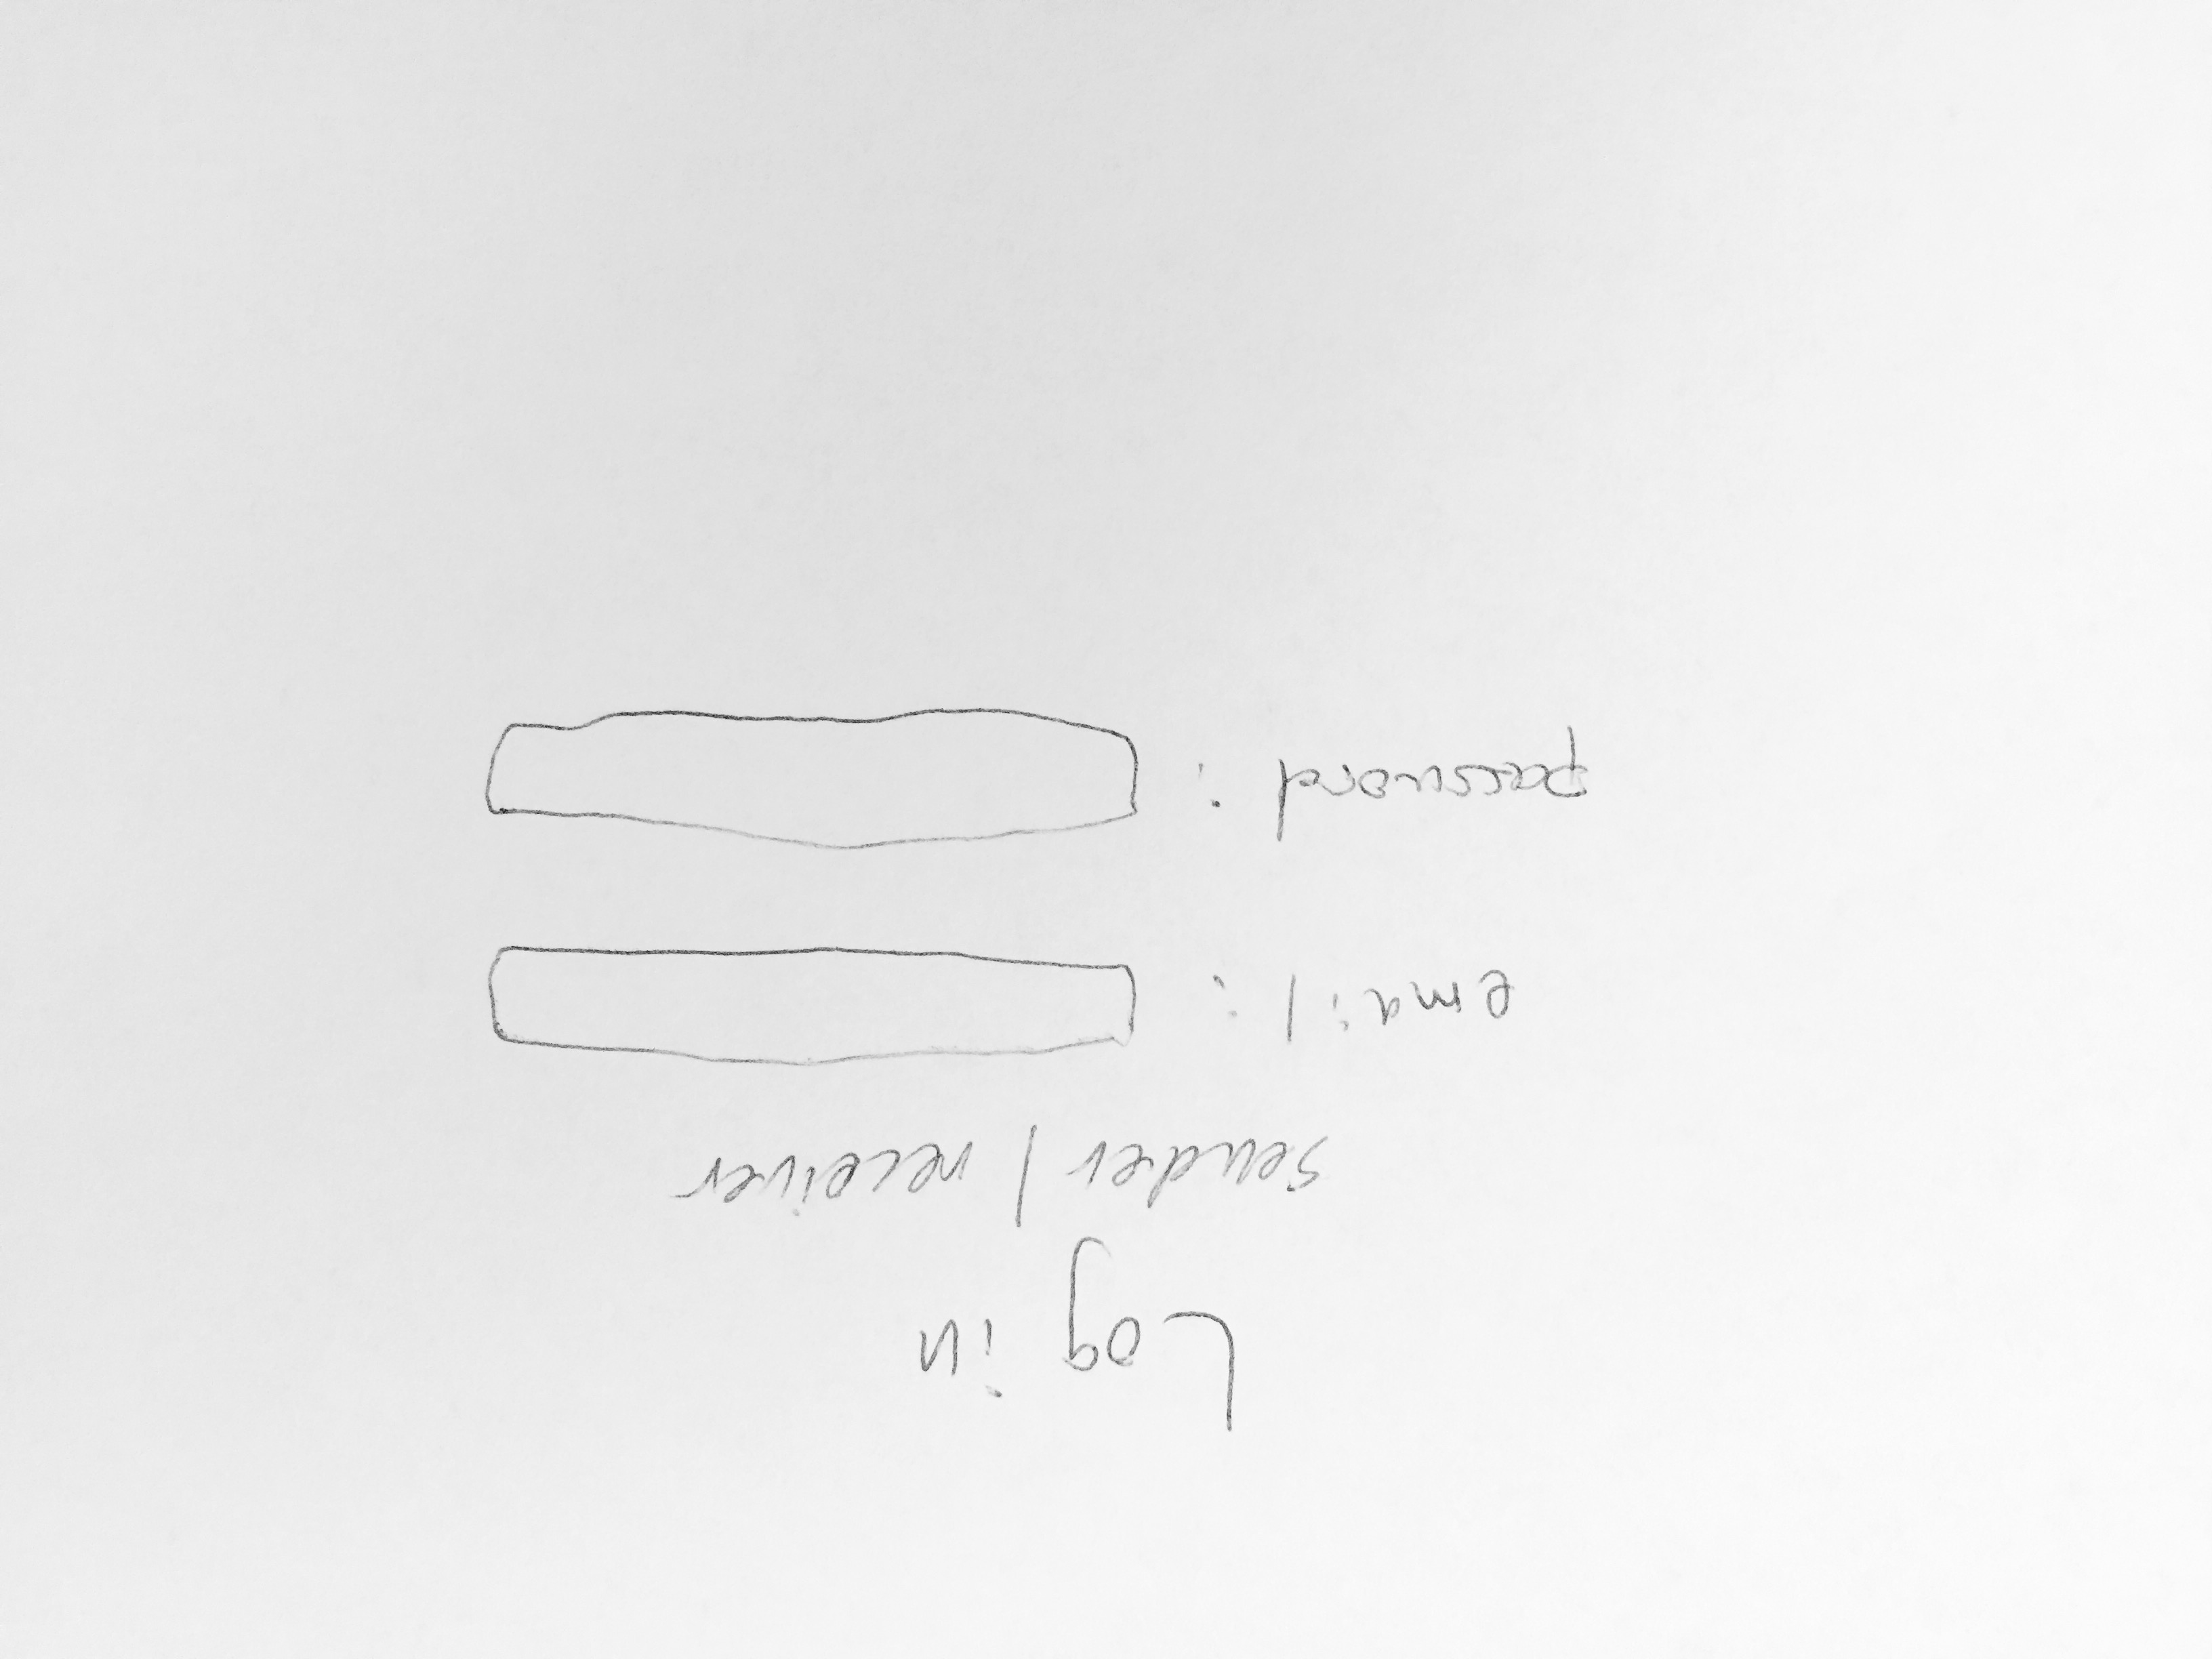 Log in
sender / receiver
email :
password :